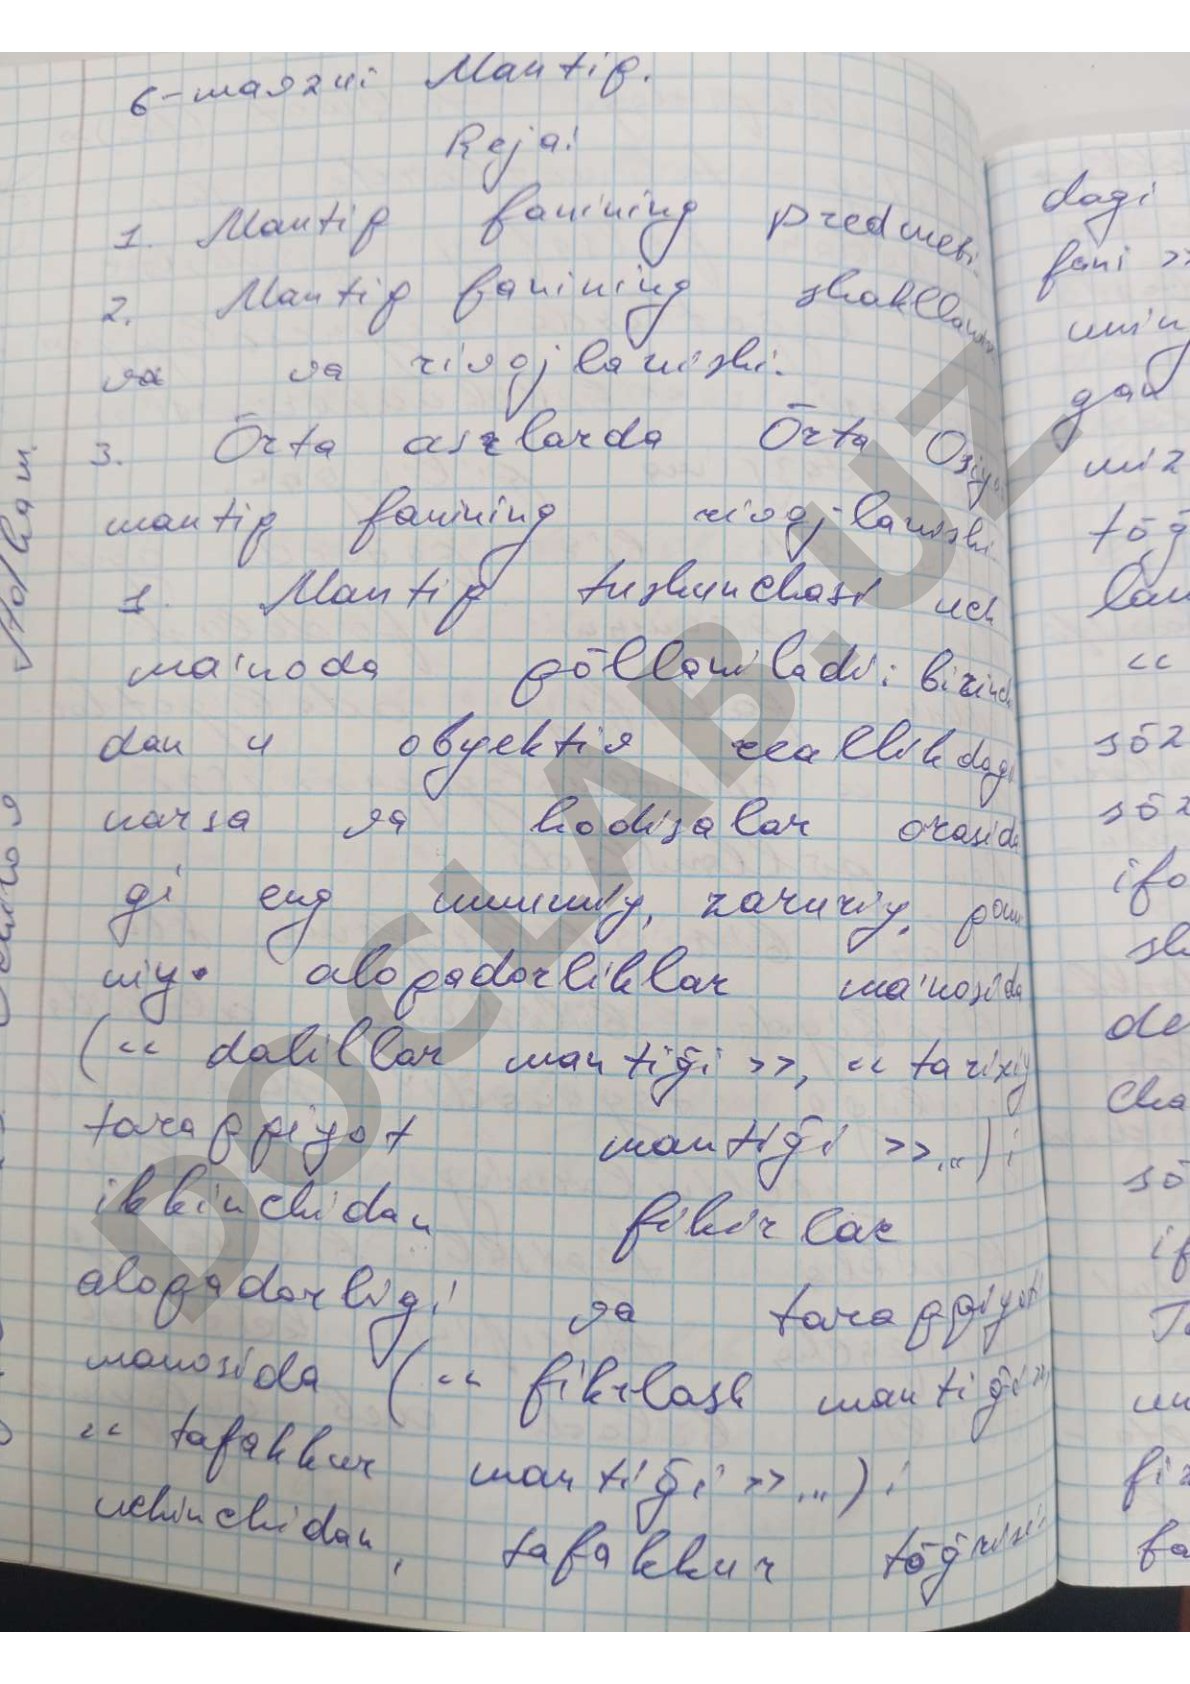 6-mavzu: Mantiq.
Reja:
1. Mantiq fanining predmeti.
2. Mantiq fanining shakllanishi
va va rivojlanishi.
3. Ōrta asrlarda Ōrta Osiyo
mantiq fanining rivojlanishi.
1. Mantiq tushunchasi uch
ma'noda qōllaniladi: birinchi
dan u obyektiv reallikdagi
narsa va hodisalar orasida
gi eng umumiy, zaruriy, qonu
niy. aloqadorliklar ma'nosida
(<< dalillar mantiḡi >>, << tarixiy
taraqqiyot mantiḡi >>...) ;
ikkinchidan fikirlar
aloqadorligi va taraqqiyoti
manosida (<< fikrlash mantiḡi >>,
<< tafakkur mantiḡi >>...) ;
uchinchidan, tafakkur tōḡrisi
dagi
fani >>
gan
miz
tōḡ
lan
<<
sōz
sōz
ifo
sh
de
cha
sō
if
fiz
fa
DOCLAB.UZ